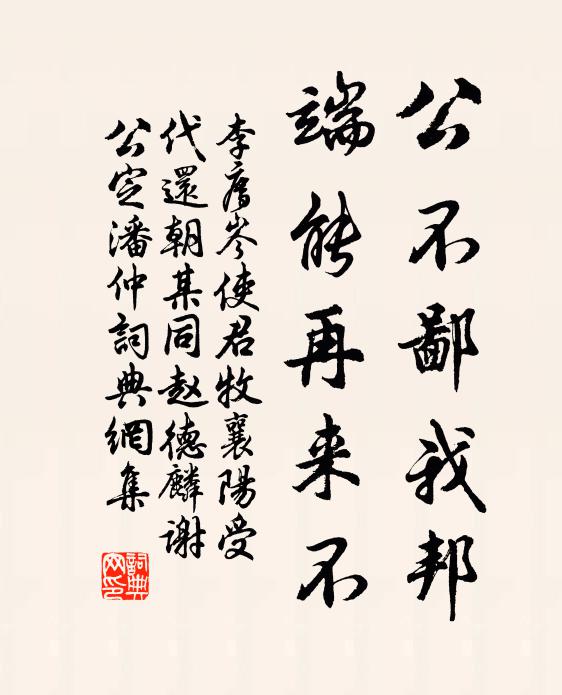 公不鄙我邦
端能再来不
李膺岑使君牧襄陽受
代還朝某同赵德麟谢
公定潘仲詞典網集
詞典網印